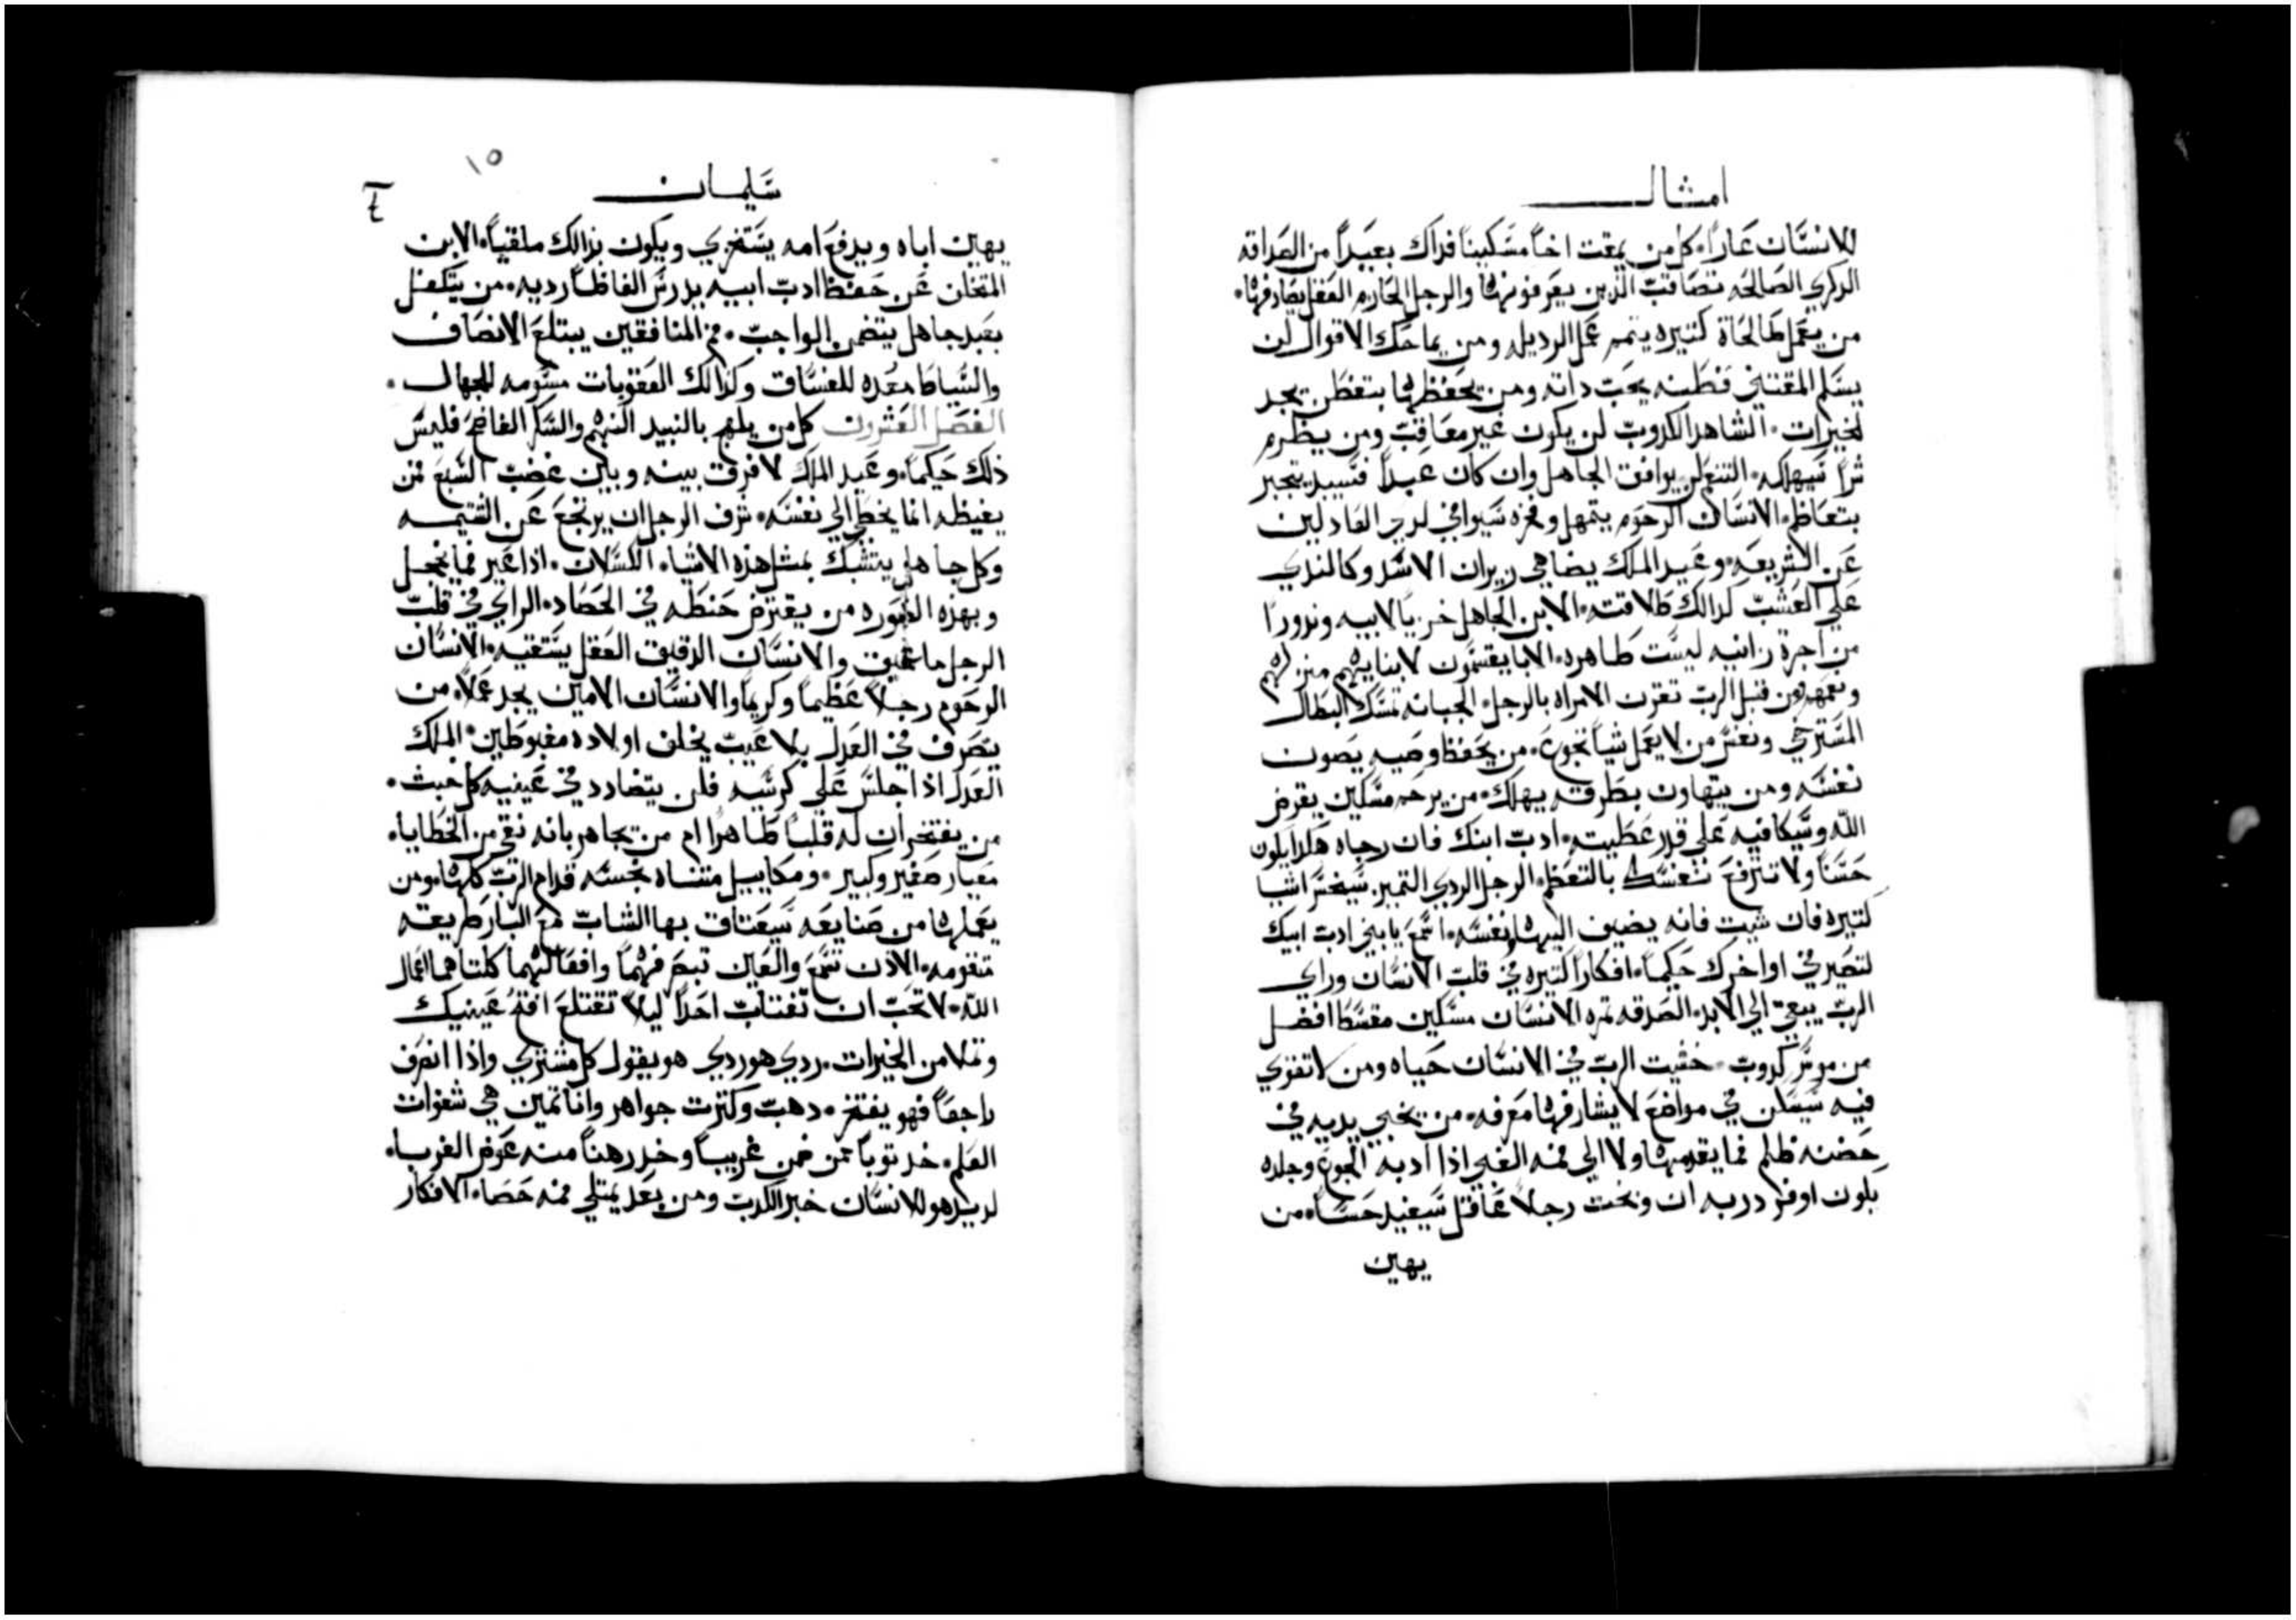 امثال
للانسان عارا. كل من يمقت اخا مسكينا فداك بعيدا من الصداقه
الدكري الصالحه تصاقب الذين يعرفونها والرجل الحازم العقل يصادفها.
من يعمل طالحاة كتيره يتمم عمل الرديله ومن يماحك الاقوال لن
يسلم المقتني فطنه يحب داته ومن يحفظها بتفطن يجد
لخيرات. الشاهد الكدوب لن يكون غير معاقب ومن يضرم
شرا سيهلكه. التنعم لن يوافق الجاهل وان كان عبدا فسيبد يتجبر
بتعاظم. الانسان الرحوم يتمهل وفخره سيوافي لدي العادلين
عن الشريعه. وعيد الملك يضاهي زيران الاسد وكالندي
علي العشب كدالك طلاقته. الابن الجاهل خزيا لابيه ونذورا
من اجرة زانيه ليست طاهره. الابا يقسمون لابنايهم منزلهم
ومن قبل الرب تقرن الامراه بالرجل. الجبانه تمسك البطال
المسترخي ونفس من لا يعمل شيا تجوع. من يحفظ وصيه يصون
نفسه ومن يتهاون بطرقه يهلك. من يرحم مسكين يقرض
الله وسيكافيه علي قدر عطيته. ادب ابنك فان رجاه هكدا يكون
حسنا ولا تترفع نفسك بالتعظم. الرجل الردي التميز سيخسر اشيا
كتيره فان شيت فانه يضيف اليها نفسه. اسمع يا بني ادب ابيك
لتصير في اواخرك حكيما. افكارا كتيره في قلب الانسان وراي
الرب يبقي الي الابد. الصدقه تمره الانسان مسكين مقسط افضل
من موسر كدوب. خشيت الرب في الانسان حياه ومن لا تقوي
فيه سيسكن في مواضع لا يشارفها معرفه. من يخبي يديه في
حضنه ظلم فما يقدمها ولا الي فمه الغبي اذا ادبه الموجع وجلده
يكون اوفر دربه ان وبخت رجلا عاقل سيفيد حسا. من
يهين
سليمان
١٥
يهين اباه ويدفع امه يستخزي ويكون بذالك ملقيا. الابن
المتخلن عن حفظ ادب ابيه يدرس الفاظا رديه. من يتكفل
بعبد جاهل يتضمن الواجب. فم المنافقين يبتلع الانصاف
والسياط معده للفساق وكذالك العقوبات مسومه للجهال.
الفصل العشرون كل من يلهج بالنبيد النهم والسكر الفاضح فليس
ذلك حكيما. وعيد الملك لا فرق بينه وبين غضب السبع فمن
يغيظه انما يخطي الي نفسه. شرف الرجل ان يرتجع عن الشتيمه
وكل جاهل يتشبك بمثل هذه الاشياء الكسلان. اذا عير فما يخجل
وبهذه الصوره من يقترض حنطه في الحصاد. الراي في قلب
الرجل ما عميق والانسان الدقيق العقل يستقيه. الانسان
الرحوم رجلا عظيما وكريما والانسان الامين يجد عملا. من
يتصرف في العدل بلا عيب يخلف اولاده مغبوطين. الملك
العدل اذا جلس علي كرسيه فلن يتضادد في عينيه كل خبث.
من يفتخر ان له قلبا طاهرا ام من يجاهر بانه نقي من الخطايا.
معيار صغير وكبير. ومكاييل متناه نجسه قدام الرب كلها. ومن
يعملها من صنايعه سيعتاق بها الشاب مع البار طريقته
متقومه. الاذن تسمع والعين تبصر فهما وافقالهما كلتاهما اعمال
الله. لا تحب ان تغتاب احدا ليلا تقتلع افة عينيك
وتملا من الخيرات. ردي هو ردي هو يقول كل مشتري واذا انصرف
راجعا فهو يفتخر. دهب وكثرت جواهر وانا تمين هي شفوات
العلم. خد توبا ممن ضمن غريبا وخد رهنا منه عوض الغربا.
لديد هو للانسان خبز الكدب ومن بعد يمتلي فمه حصا. الافكار